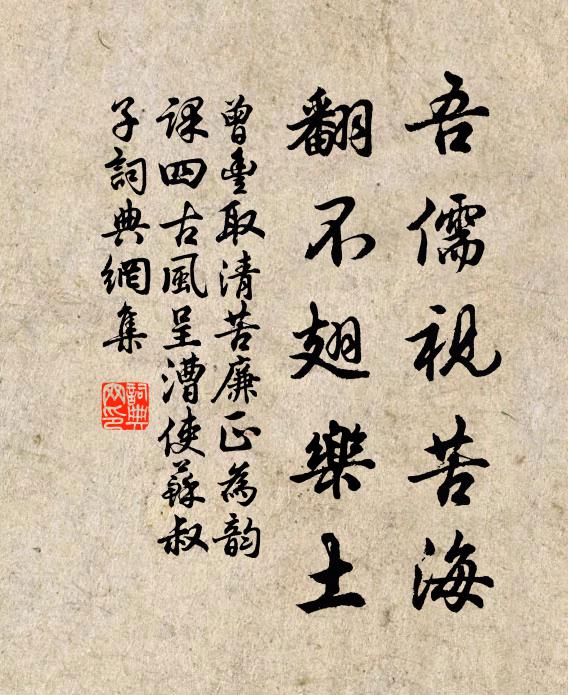 吾儒視苦海
翻不翅樂土
曾豊取清苦廉正為韵
課四古風呈漕使蘇叔
子詞典網集
詞典网印